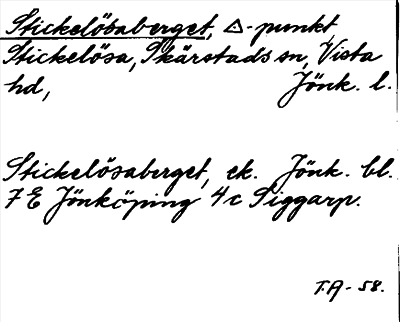 Stickelösaberget, △-punkt,
Stickelösa, Skärstads sn, Vista
hd, Jönk. l.
Stickelösaberget, ek. Jönk. bl.
7 E Jönköping 4c Siggarp.
T.A-58.